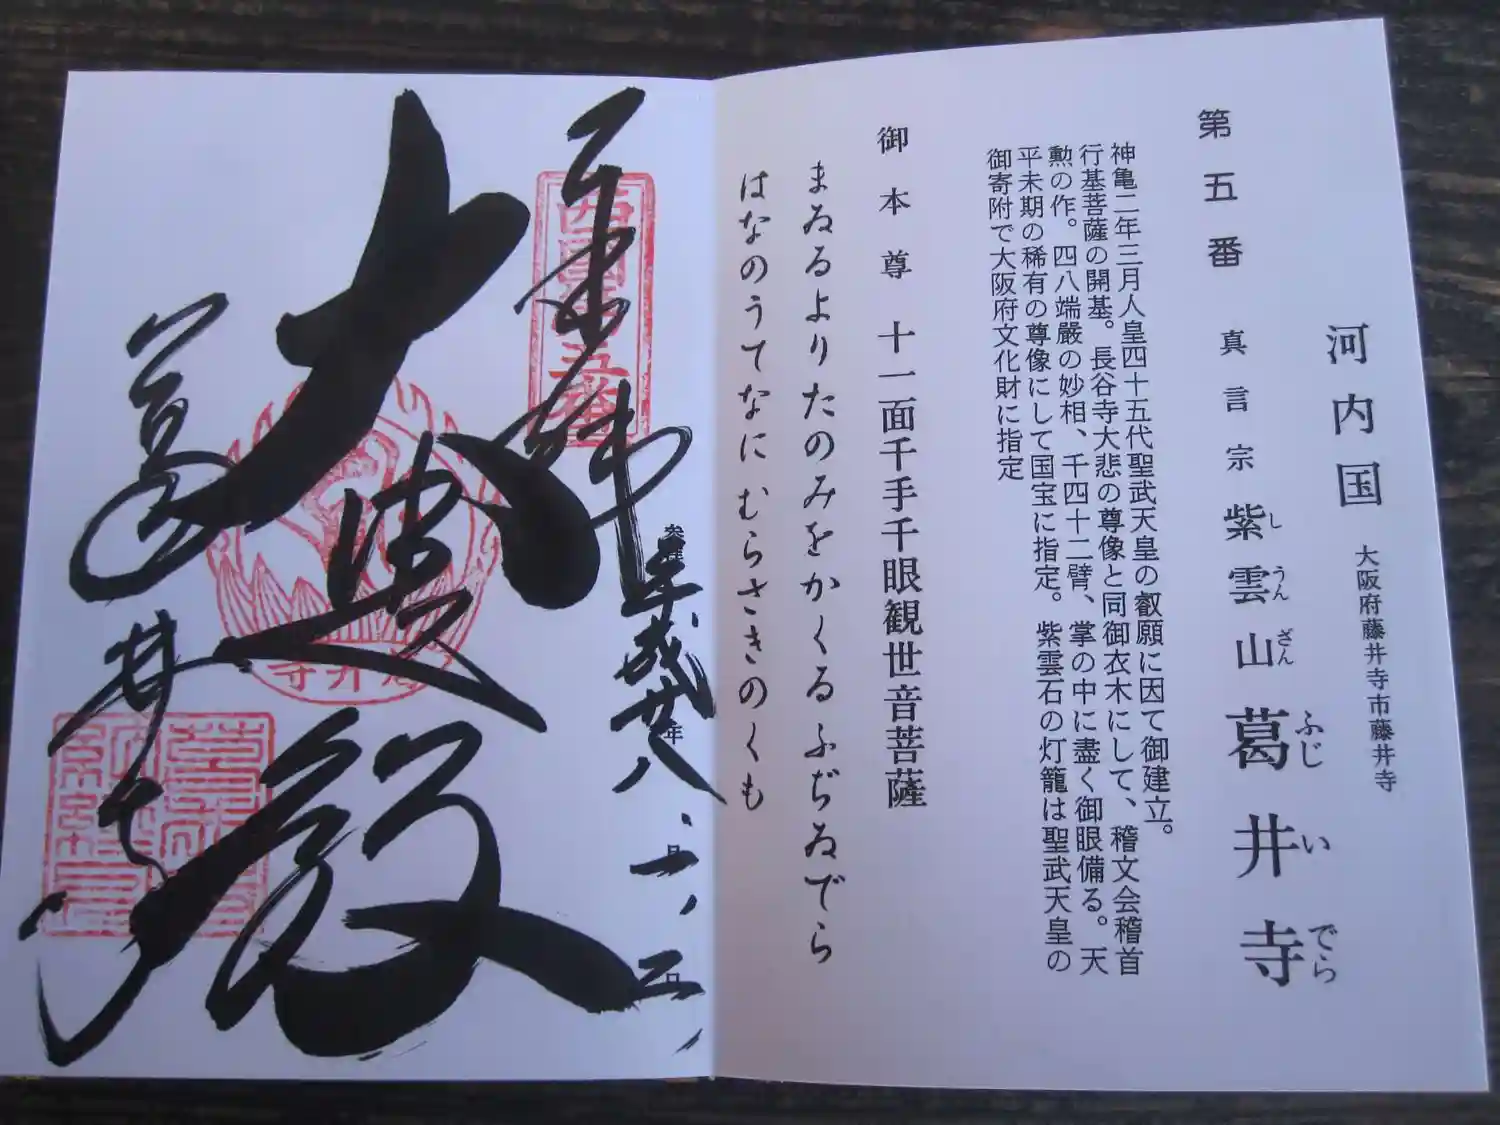 河内国 大阪府藤井寺市藤井寺
第五番 真言宗 紫雲山 葛井寺
し うん ざん ふじ い でら
神亀二年三月人皇四十五代聖武天皇の叡願に因て御建立。
行基菩薩の開基。長谷寺大悲の尊像と同御衣木にして、稽文会稽首
勲の作。四八端嚴の妙相、千四十二臂、掌の中に盡く御眼備る。天
平未期の稀有の尊像にして国宝に指定。紫雲石の灯籠は聖武天皇の
御寄附で大阪府文化財に指定
御本尊 十一面千手千眼観世音菩薩
まゐるよりたのみをかくるふぢゐでら
はなのうてなにむらさきのくも
奉拝
平成廿八年 一月 二日
西国第五番
大悲殿
葛井寺